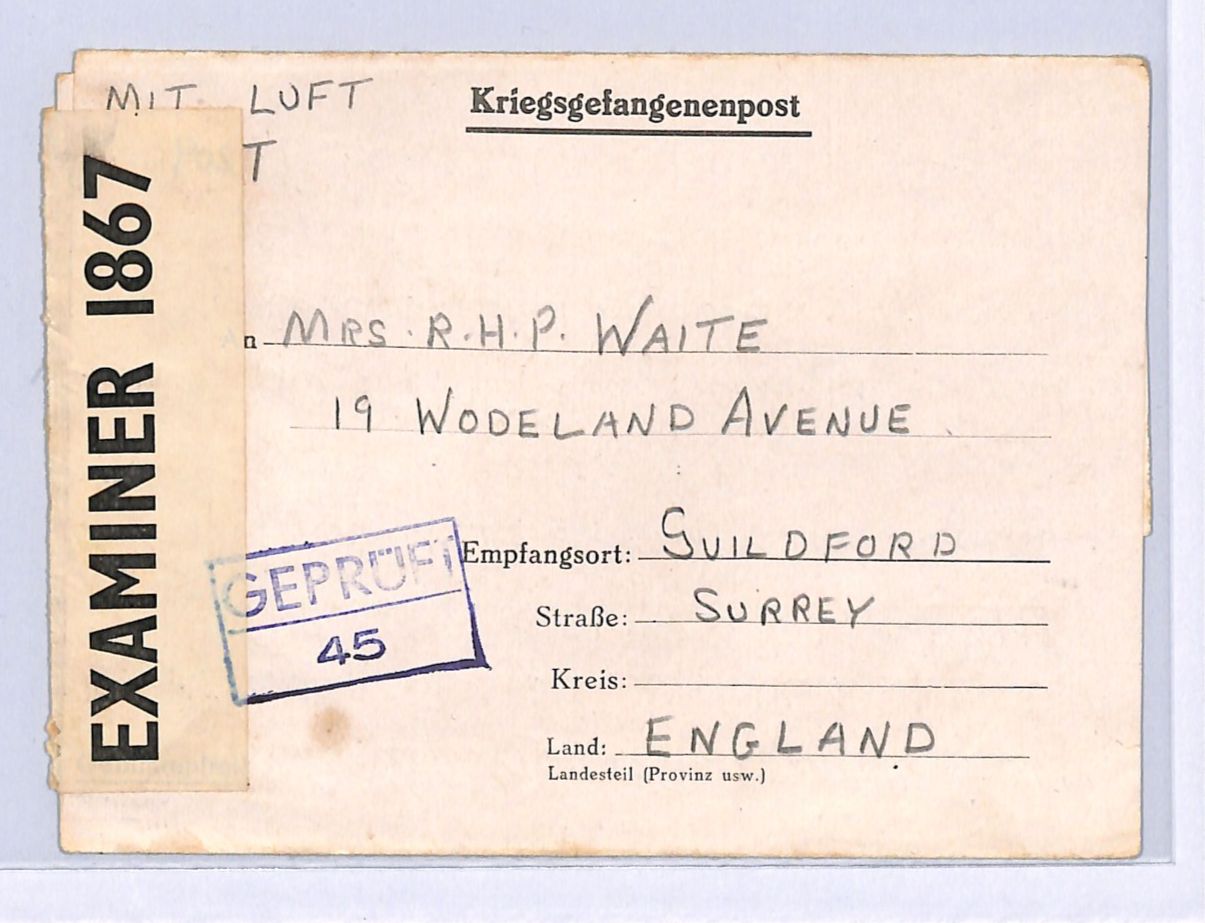 MIT LUFT
POST
Kriegsgefangenenpost
EXAMINER 1867
An MRS. R.H.P. WAITE
19 WODELAND AVENUE
GEPRÜFT
45
Empfangsort: GUILDFORD
Straße: SURREY
Kreis:
Land: ENGLAND
Landesteil (Provinz usw.)